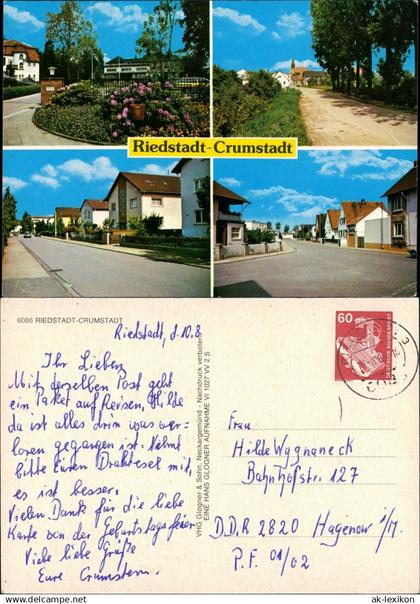 Riedstadt-Crumstadt
6086 RIEDSTADT-CRUMSTADT
Riedstadt, d. 10.8.
Ihr Lieben
Mit derselben Post geht
ein Paket auf Reisen, Hilde
da ist alles drin was ver-
loren gegangen ist. Nehmt
bitte Euren Drahtesel mit,
es ist besser.
Vielen Dank für die liebe
Karte von der Geburtstagsfeier
Viele liebe Grüße
Eure Crumster.
VHG Glogner & Sohn, Neckargemünd - Nachdruck verboten
EINE HANS GLOGNER AUFNAHME VI 1027 VV 2 S
60
DEUTSCHE BUNDESPOST
Frau
Hilde Wygnaneck
Bahnhofstr. 127
D.D.R 2820 Hagenow i/M.
P.F. 01/02
© www.ak-lexikon.com